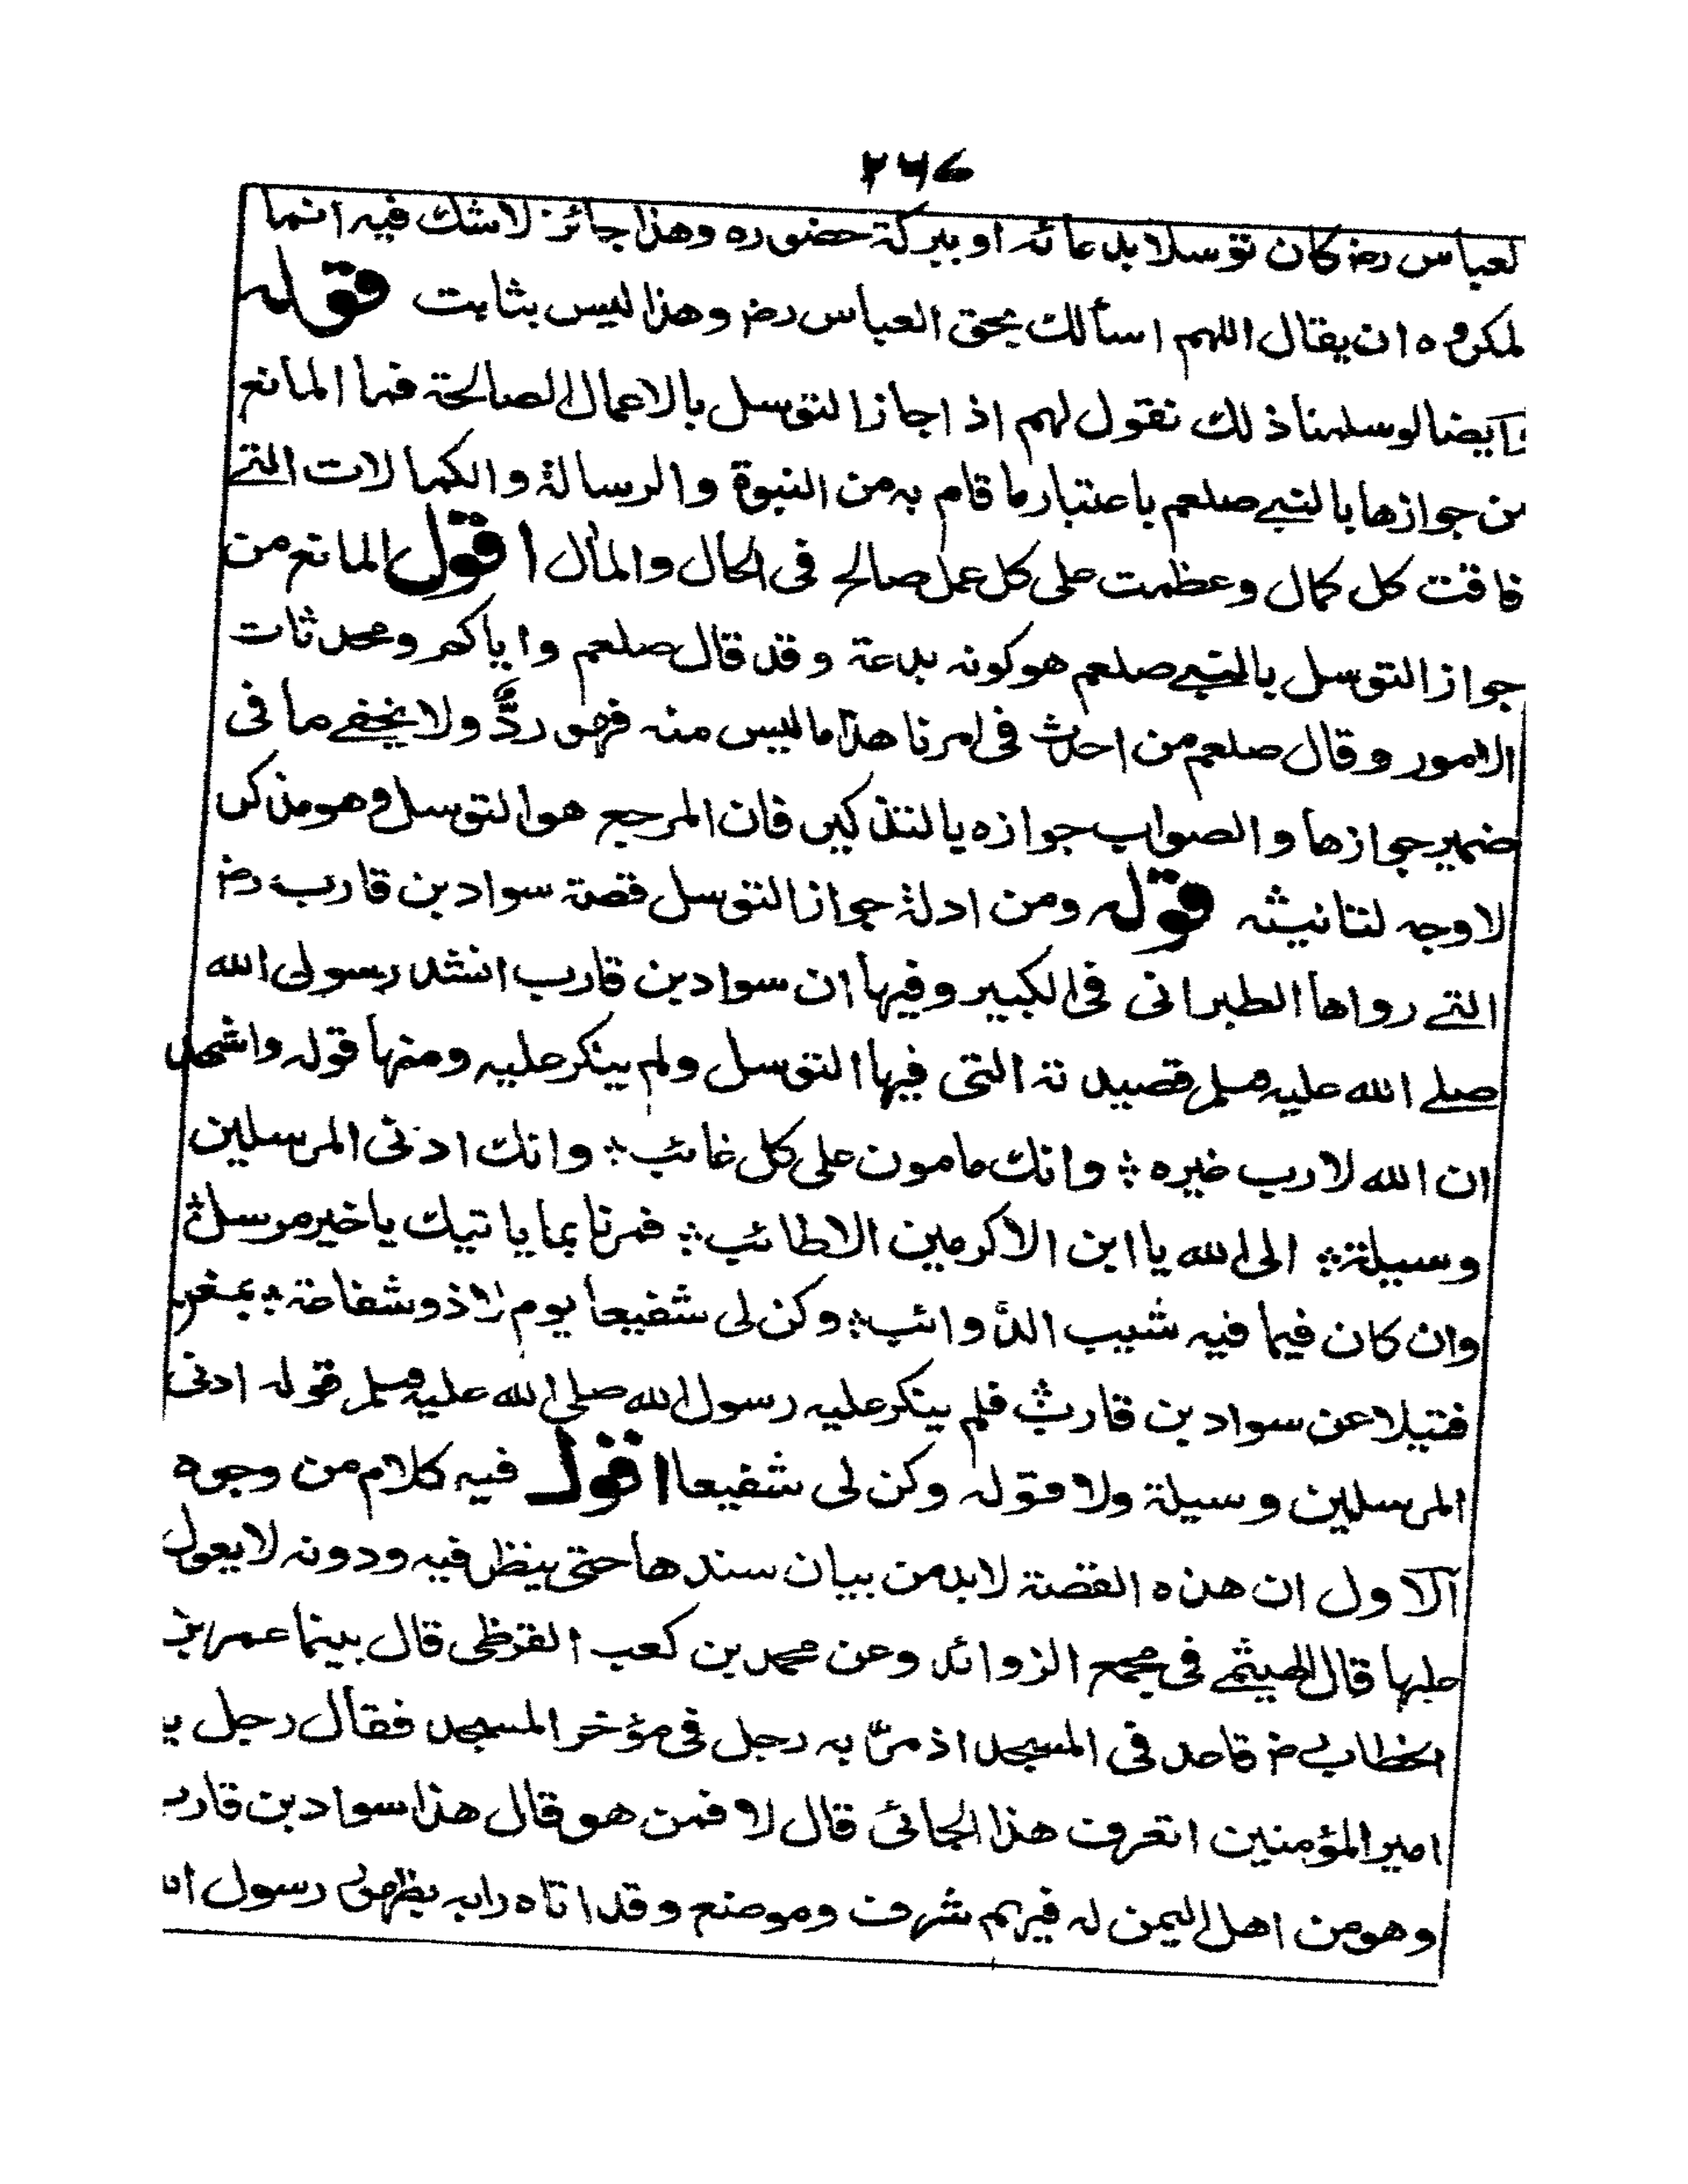 ٢٦٧
لعباس رض كان توسلا بدعائه او ببركة حضوره وهذا جائز لاشك فيه انما
لمكروه ان يقال اللهم اسألك بحق العباس رض وهذا ليس بثابت قوله
وايضا لو سلمنا ذلك نقول لهم اذا جاز التوسل بالاعمال الصالحة فما المانع
من جوازها بالنبي صلعم باعتبار ما قام به من النبوة والرسالة والكمالات التي
فاقت كل كمال وعظمت على كل عمل صالح فى الحال والمأل اقول المانع من
جواز التوسل بالنبي صلعم هو كونه بدعة وقد قال صلعم واياكم ومحدثات
الامور وقال صلعم من احدث فى امرنا هذا ما ليس منه فهو ردٌّ ولا يخفى ما فى
ضمير جوازها والصواب جوازه بالتذكير فان المرجع هو التوسل وهو مذكر
لا وجه لتانيثه قوله ومن ادلة جواز التوسل قصة سواد بن قارب رض
التي رواها الطبرانى فى الكبير وفيها ان سواد بن قارب انشد رسول الله
صلى الله عليه وسلم قصيدته التى فيها التوسل ولم ينكر عليه ومنها قوله واشهد
ان الله لا رب غيره ؞ وانك مامون على كل غائب ؞ وانك ادنى المرسلين
وسيلة ؞ الى الله يا ابن الاكرمين الاطائب ؞ فمرنا بما ياتيك يا خير مرسل ؞
وان كان فيما فيه شيب الذوائب ؞ وكن لى شفيعا يوم لا ذو شفاعة ؞ بمغن
فتيلا عن سواد بن قارب ؞ فلم ينكر عليه رسول الله صلى الله عليه وسلم قوله ادنى
المرسلين وسيلة ولا قوله وكن لى شفيعا اقول فيه كلام من وجوه
الاول ان هذه القصة لابد من بيان سندها حتى ينظر فيه ودونه لا يعول
عليها قال الهيثمي فى مجمع الزوائد وعن محمد بن كعب القرظى قال بينما عمر بن
الخطاب رض قاعد فى المسجد اذ مرّ به رجل فى مؤخر المسجد فقال رجل يا
امير المؤمنين اتعرف هذا الجائى قال لا فمن هو قال هذا سواد بن قارب
وهو من اهل اليمن له فيهم شرف وموضع وقد اتاه رايه بظهور رسول الله